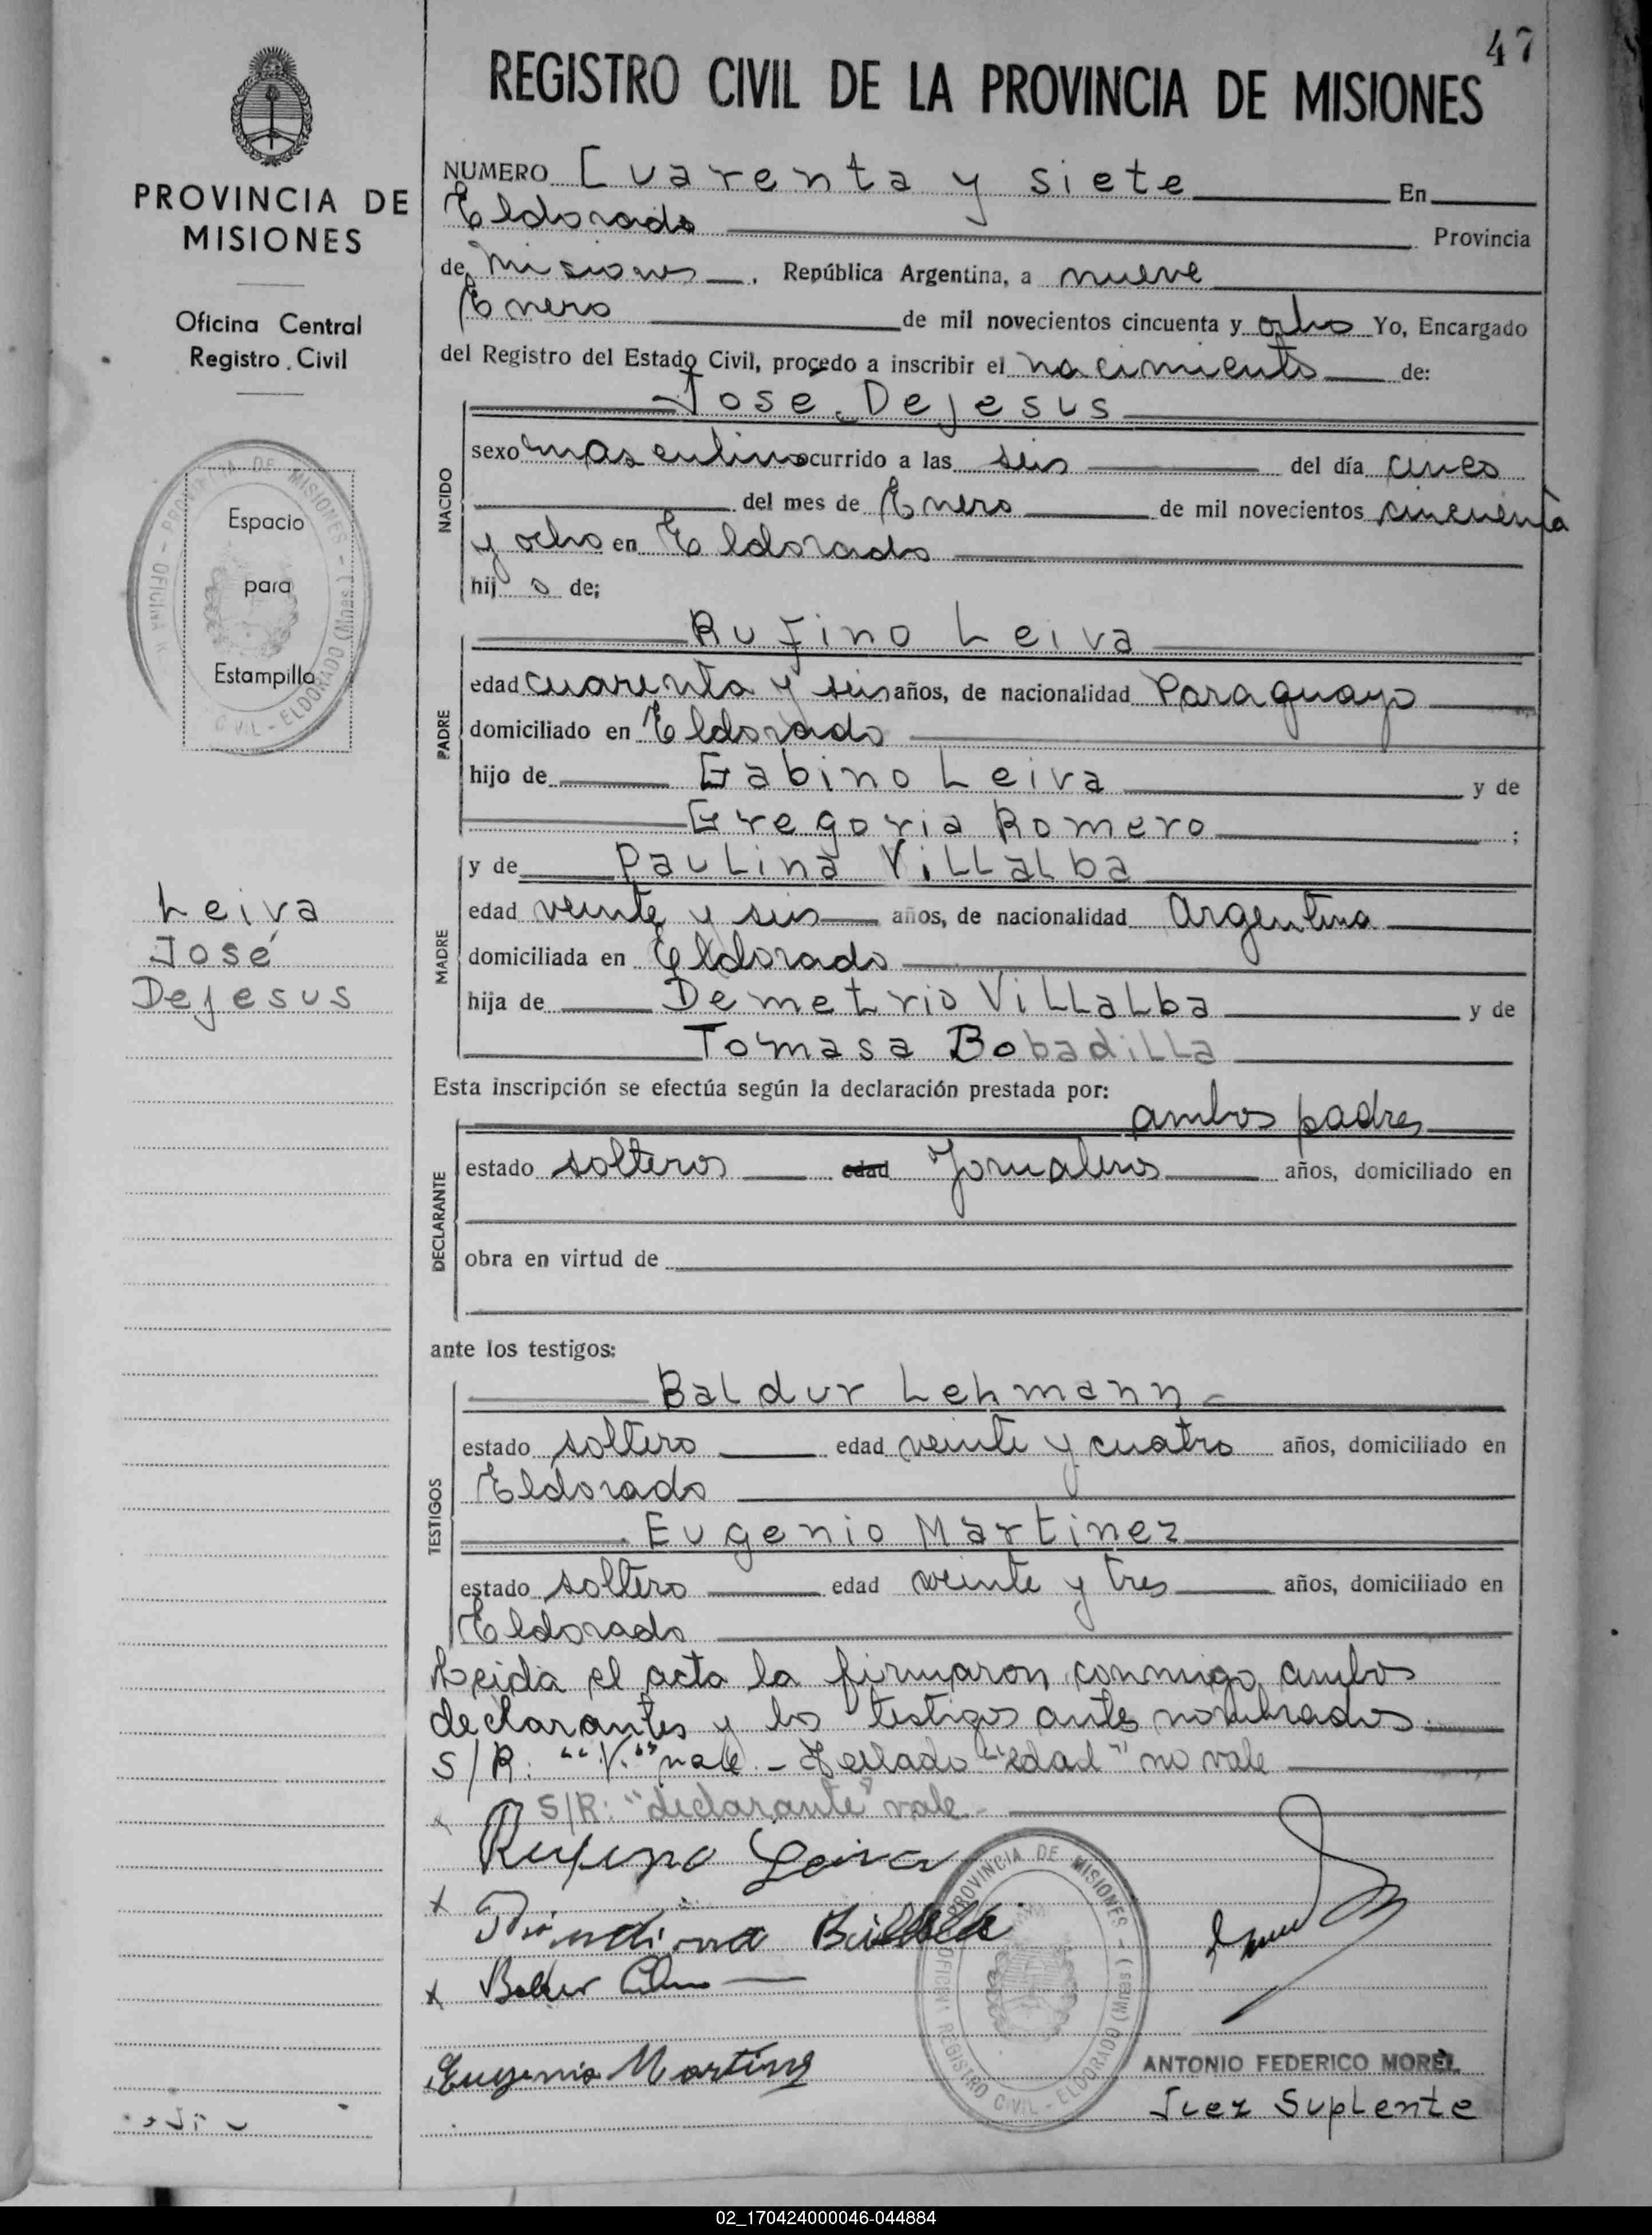 47
REGISTRO CIVIL DE LA PROVINCIA DE MISIONES
PROVINCIA DE
MISIONES
Oficina Central
Registro Civil
Espacio
para
Estampilla
Leiva
José
Dejesus
NUMERO Cuarenta y siete En
Eldorado Provincia
de Misiones, República Argentina, a nueve
Enero de mil novecientos cincuenta y ocho Yo, Encargado
del Registro del Estado Civil, procedo a inscribir el nacimiento de:
José Dejesus
NACIDO
sexo masculino ocurrido a las seis del día cinco
del mes de Enero de mil novecientos cincuenta
y ocho en Eldorado
hijo de;
Rufino Leiva
PADRE
edad cuarenta y seis años, de nacionalidad Paraguayo
domiciliado en Eldorado
hijo de Gabino Leiva y de
Gregoria Romero ;
MADRE
y de Paulina Villalba
edad veinte y seis años, de nacionalidad Argentina
domiciliada en Eldorado
hija de Demetrio Villalba y de
Tomasa Bobadilla
Esta inscripción se efectúa según la declaración prestada por:
ambos padres
DECLARANTE
estado solteros edad Jornaleros años, domiciliado en
obra en virtud de
ante los testigos:
Baldur Lehmann
TESTIGOS
estado soltero edad veinte y cuatro años, domiciliado en
Eldorado
Eugenio Martinez
estado soltero edad veinte y tres años, domiciliado en
Eldorado
Leida el acta la firmaron conmigo ambos
declarantes y los testigos ante nombrados.
S/R: "V." vale - Testado "edad" no vale
S/R: "declarante" vale
Rufino Leiva
Eugenio Martinez
PROVINCIA DE MISIONES - OFICINA REGISTRO CIVIL - ELDORADO (Mnes.)
ANTONIO FEDERICO MOREL
Juez Suplente
02_170424000046-044884